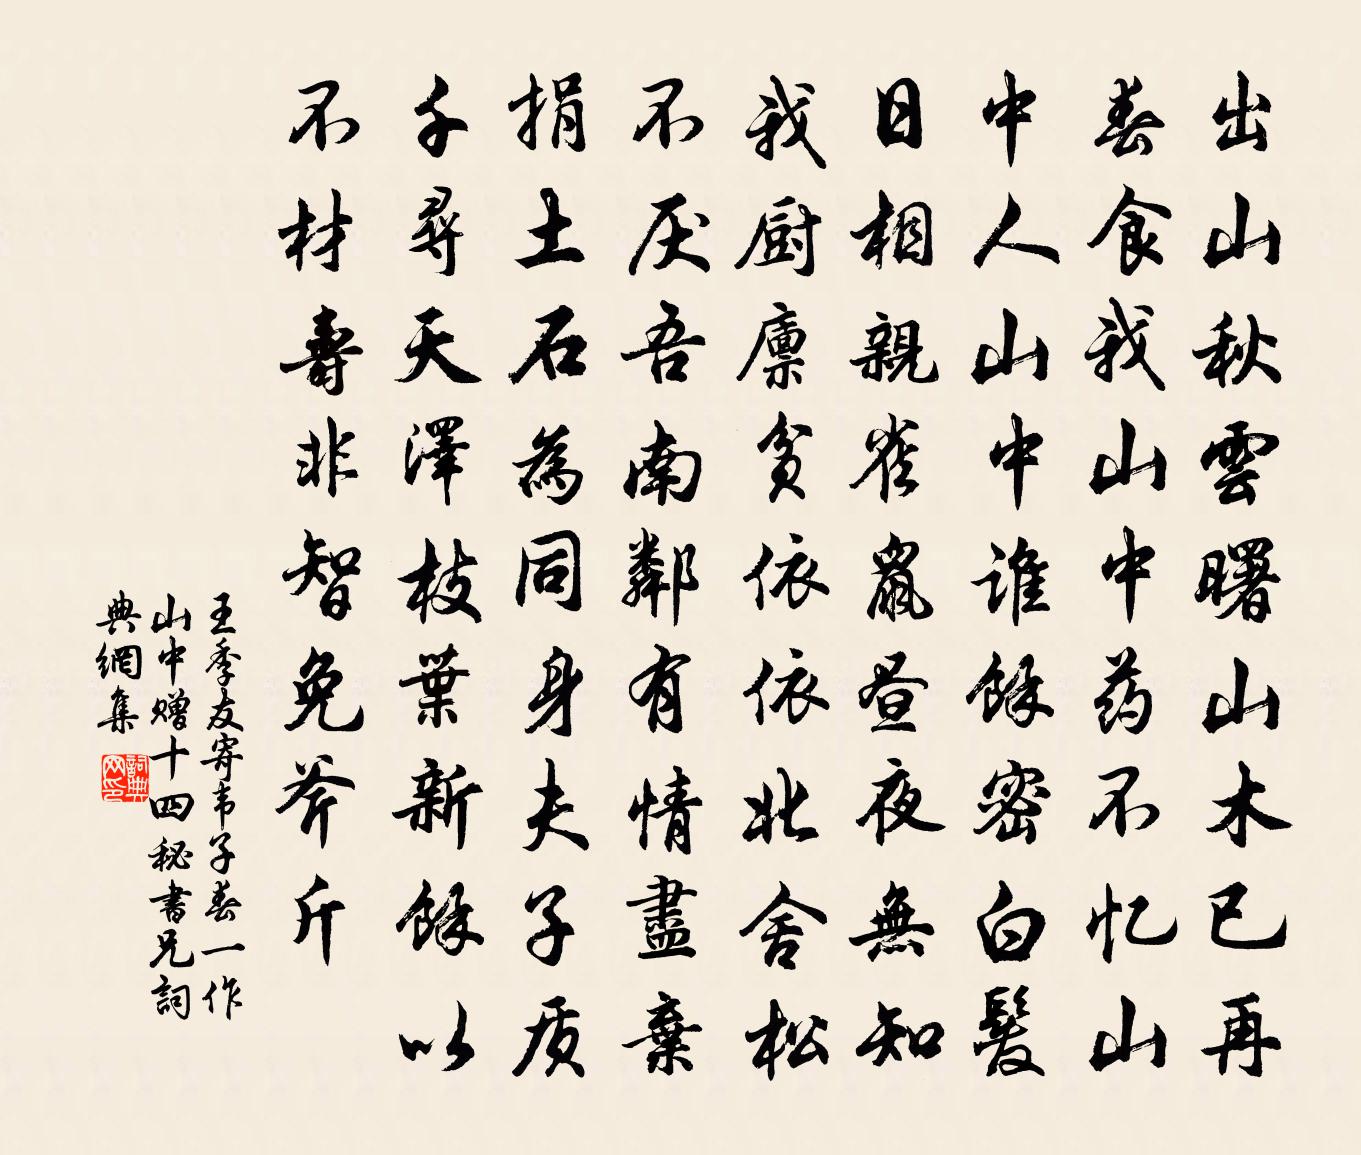 出山秋雲曙山木已再
春食我山中药不忆山
中人山中誰餘密白髮
日相親雀鼠昼夜無知
我厨廪贫依依北舍松
不厌吾南鄰有情盡棄
捐土石為同身夫子质
千尋天澤枝葉新餘以
不材壽非智免斧斤
王季友寄韦子春一作
山中赠十四秘書兄詞
典網集
詞典网印